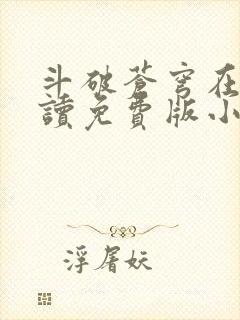 斗破蒼穹在
讀免費版小
浮屠妖